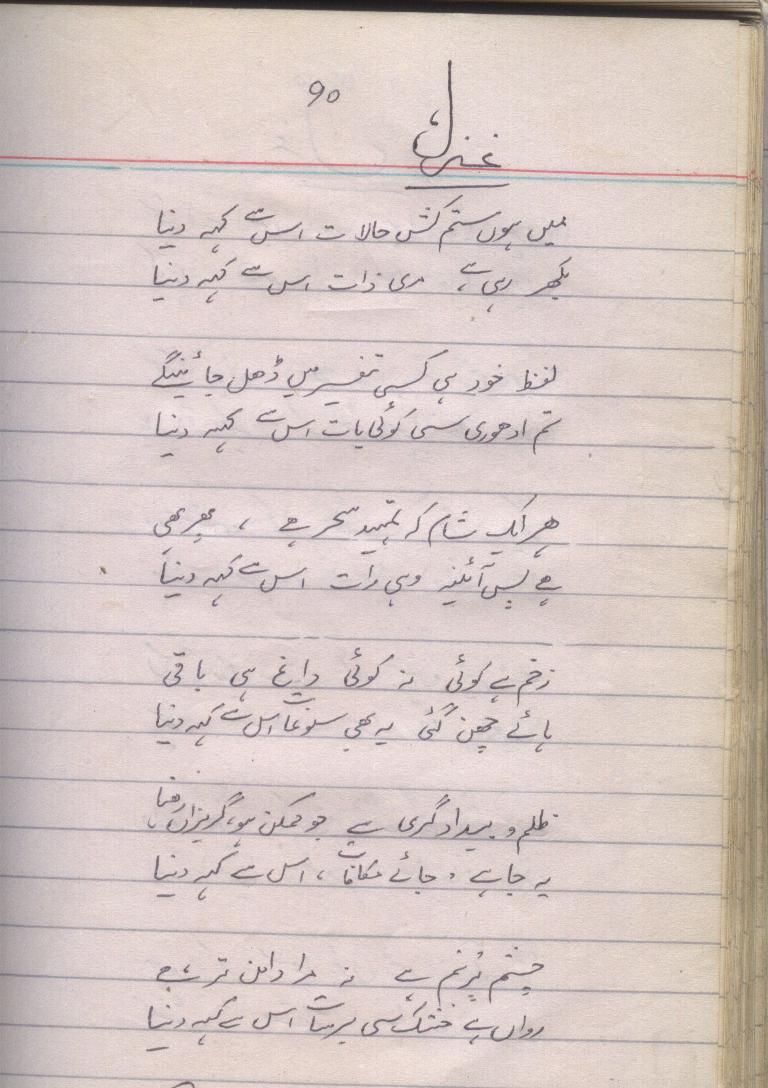 ۹۰
غزل
میں ہوں ستم کش حالات اس سے کہہ دینا
بکھر رہی ہے مری ذات اس سے کہہ دینا
لفظ خود ہی کسی تفسیر میں ڈھل جائینگے
تم ادھوری سہی کوئی بات اس سے کہہ دینا
ہر ایک شام کہ تمہید سحر ہے ، پھر بھی
ہے پس آئینہ وہی رات اس سے کہہ دینا
زخم ہے کوئی نہ کوئی داغ ہی باقی
ہائے چھن گئی یہ بھی سوغات اس سے کہہ دینا
ظلم و بیداد گری سے جو ممکن ہو، گریزاں رہنا
یہ جا ہے ، جائے مکافات ، اس سے کہہ دینا
چشم پُرنم ہے نہ مرا دامن تر ہے
رواں ہے خشک سی برسات اس سے کہہ دینا